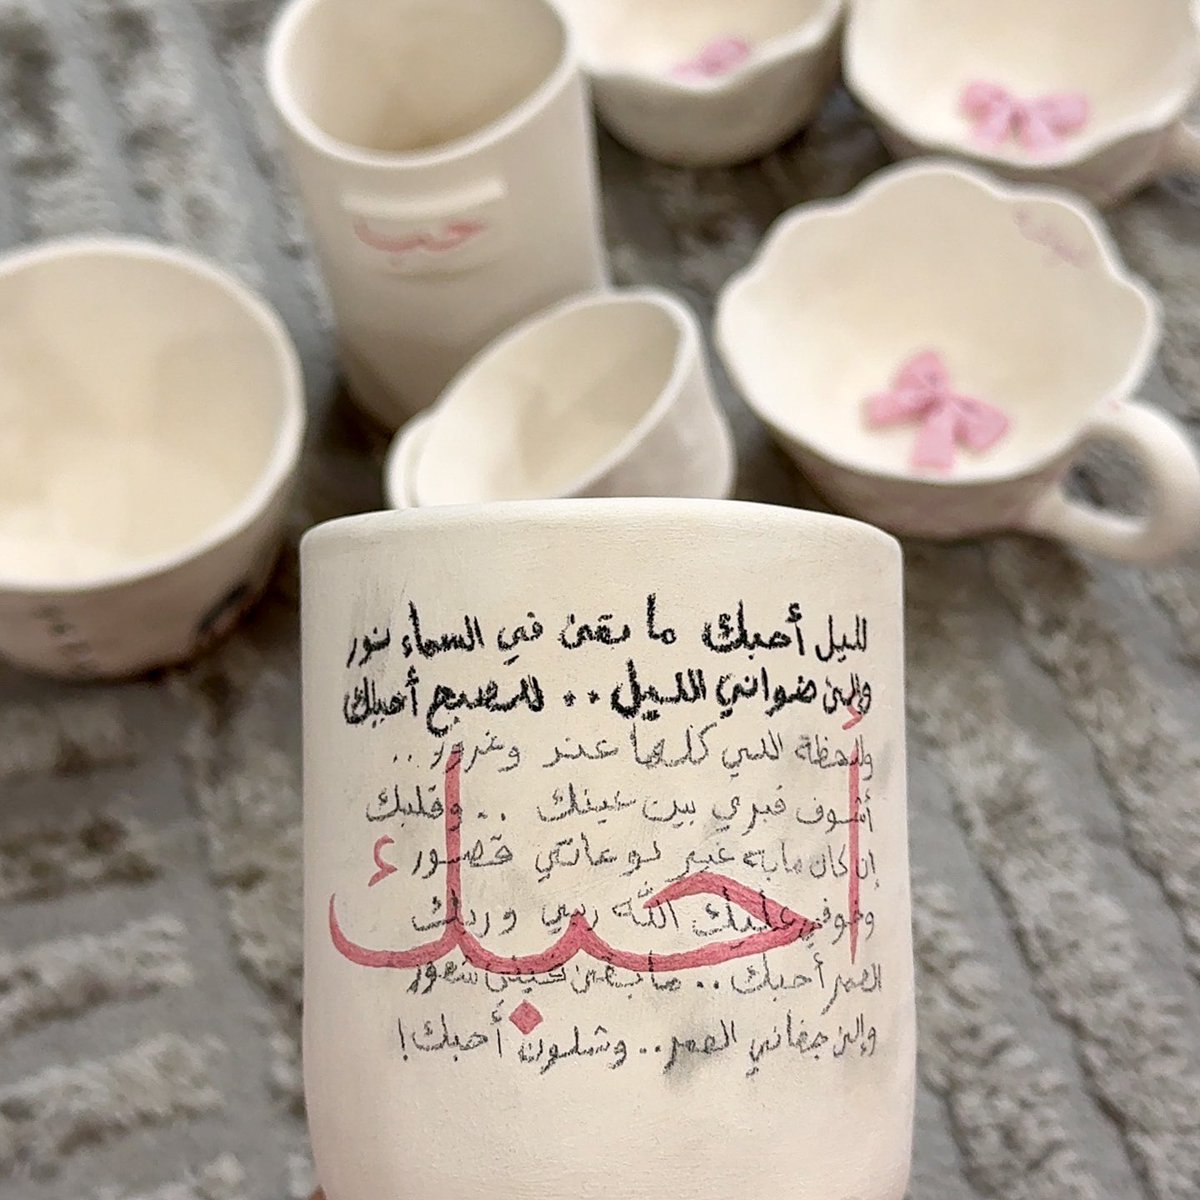 حب
لليل أحبك ما بقى في السماء نور
وإلين ضواني الليل .. للصبح أحبك
ولاحظة اللي كلها عنز وغرور ..
أشوف قبري بين عينك .. وقلبك
إن كان مابه غير لوعاتي قصور
وخوفي عليك الله ربي وربك
العمر أحبك .. ما بقى فيني شعور
وإلين جفاني العمر .. وشلون أحبك!
أحبك